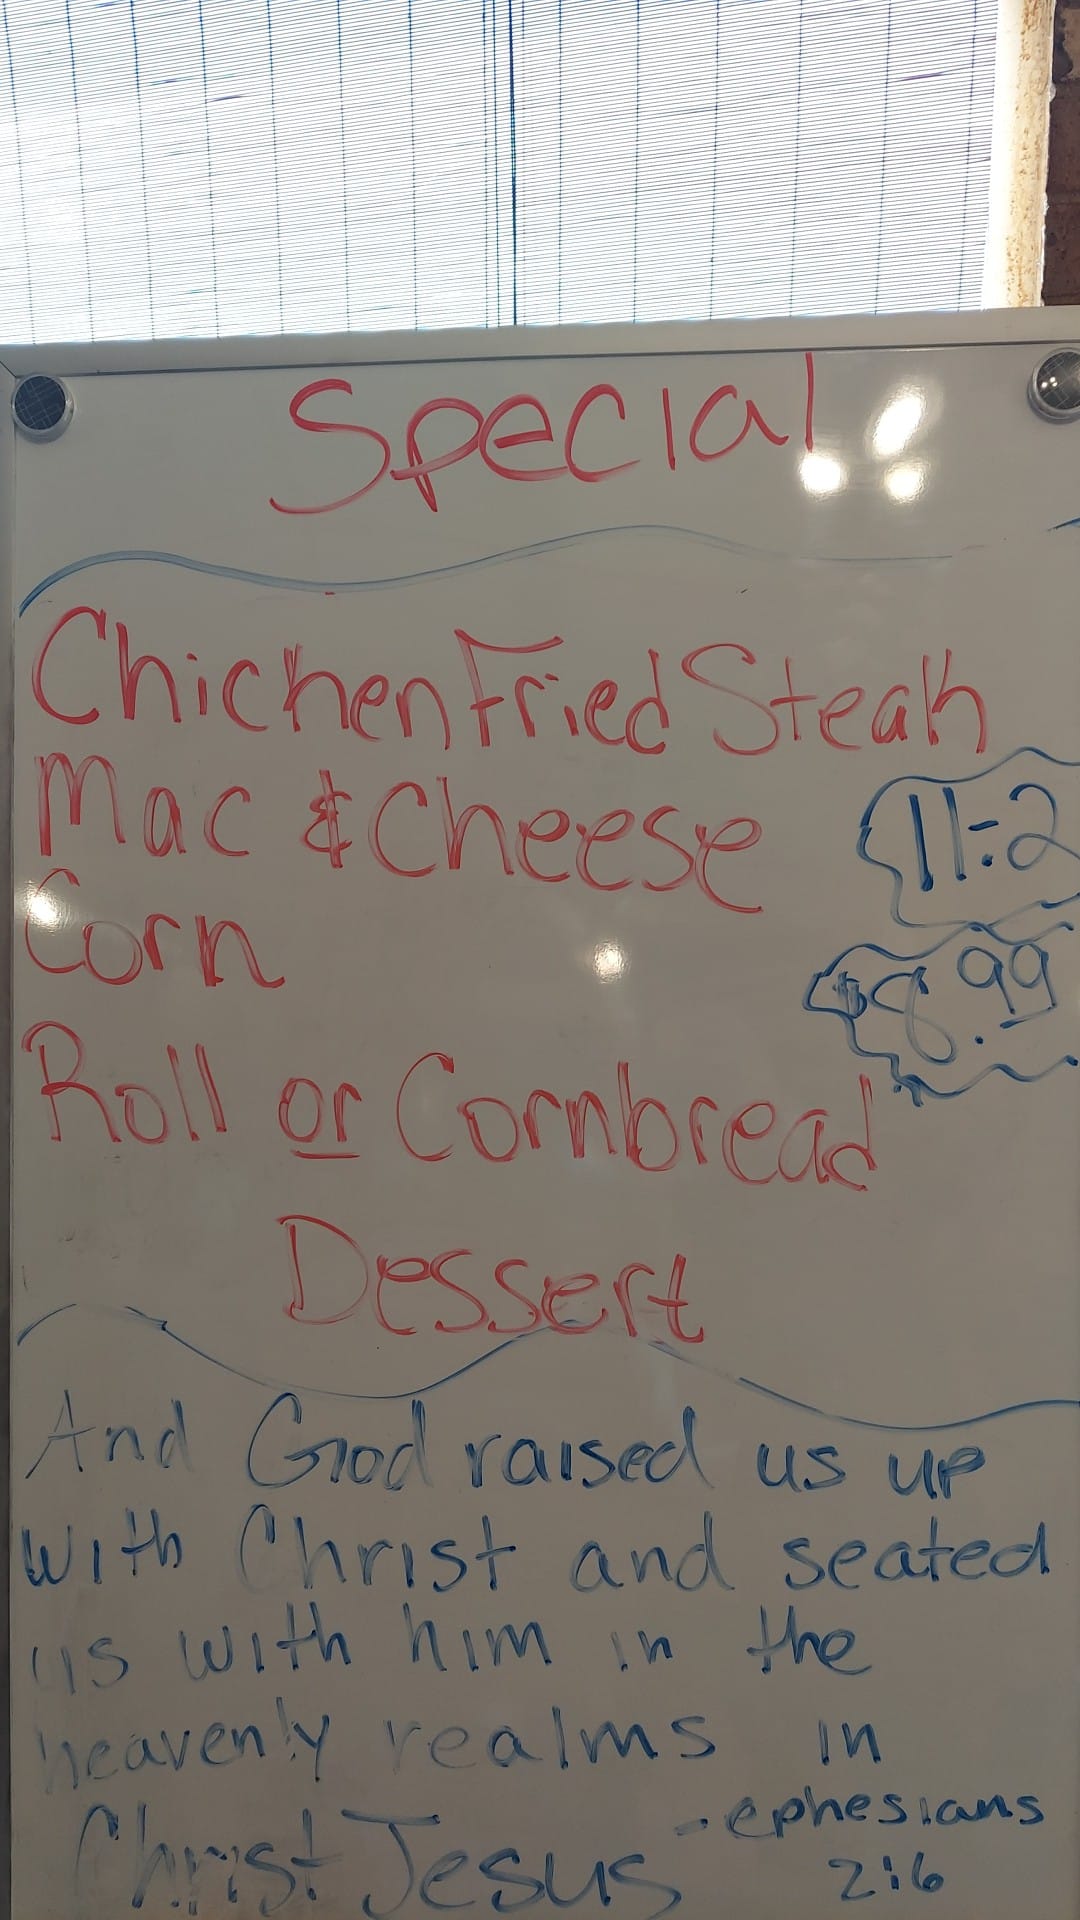 Special
Chicken Fried Steak
Mac & Cheese
11-2
Corn
$8.99
Roll or Cornbread
Dessert
And God raised us up
with Christ and seated
us with him in the
heavenly realms in
Christ Jesus - ephesians
2:6